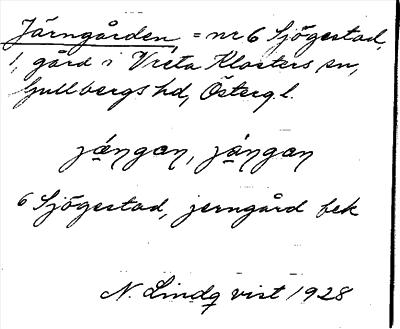 Järngården, = nr 6 Sjögestad,
1, gård i Vreta Klosters sn,
Gullbergs hd, Österg l.
jä́ŋgaṇ, jä́ŋgaṇ
6 Sjögestad, jerngård bek
N. Lindq vist 1928